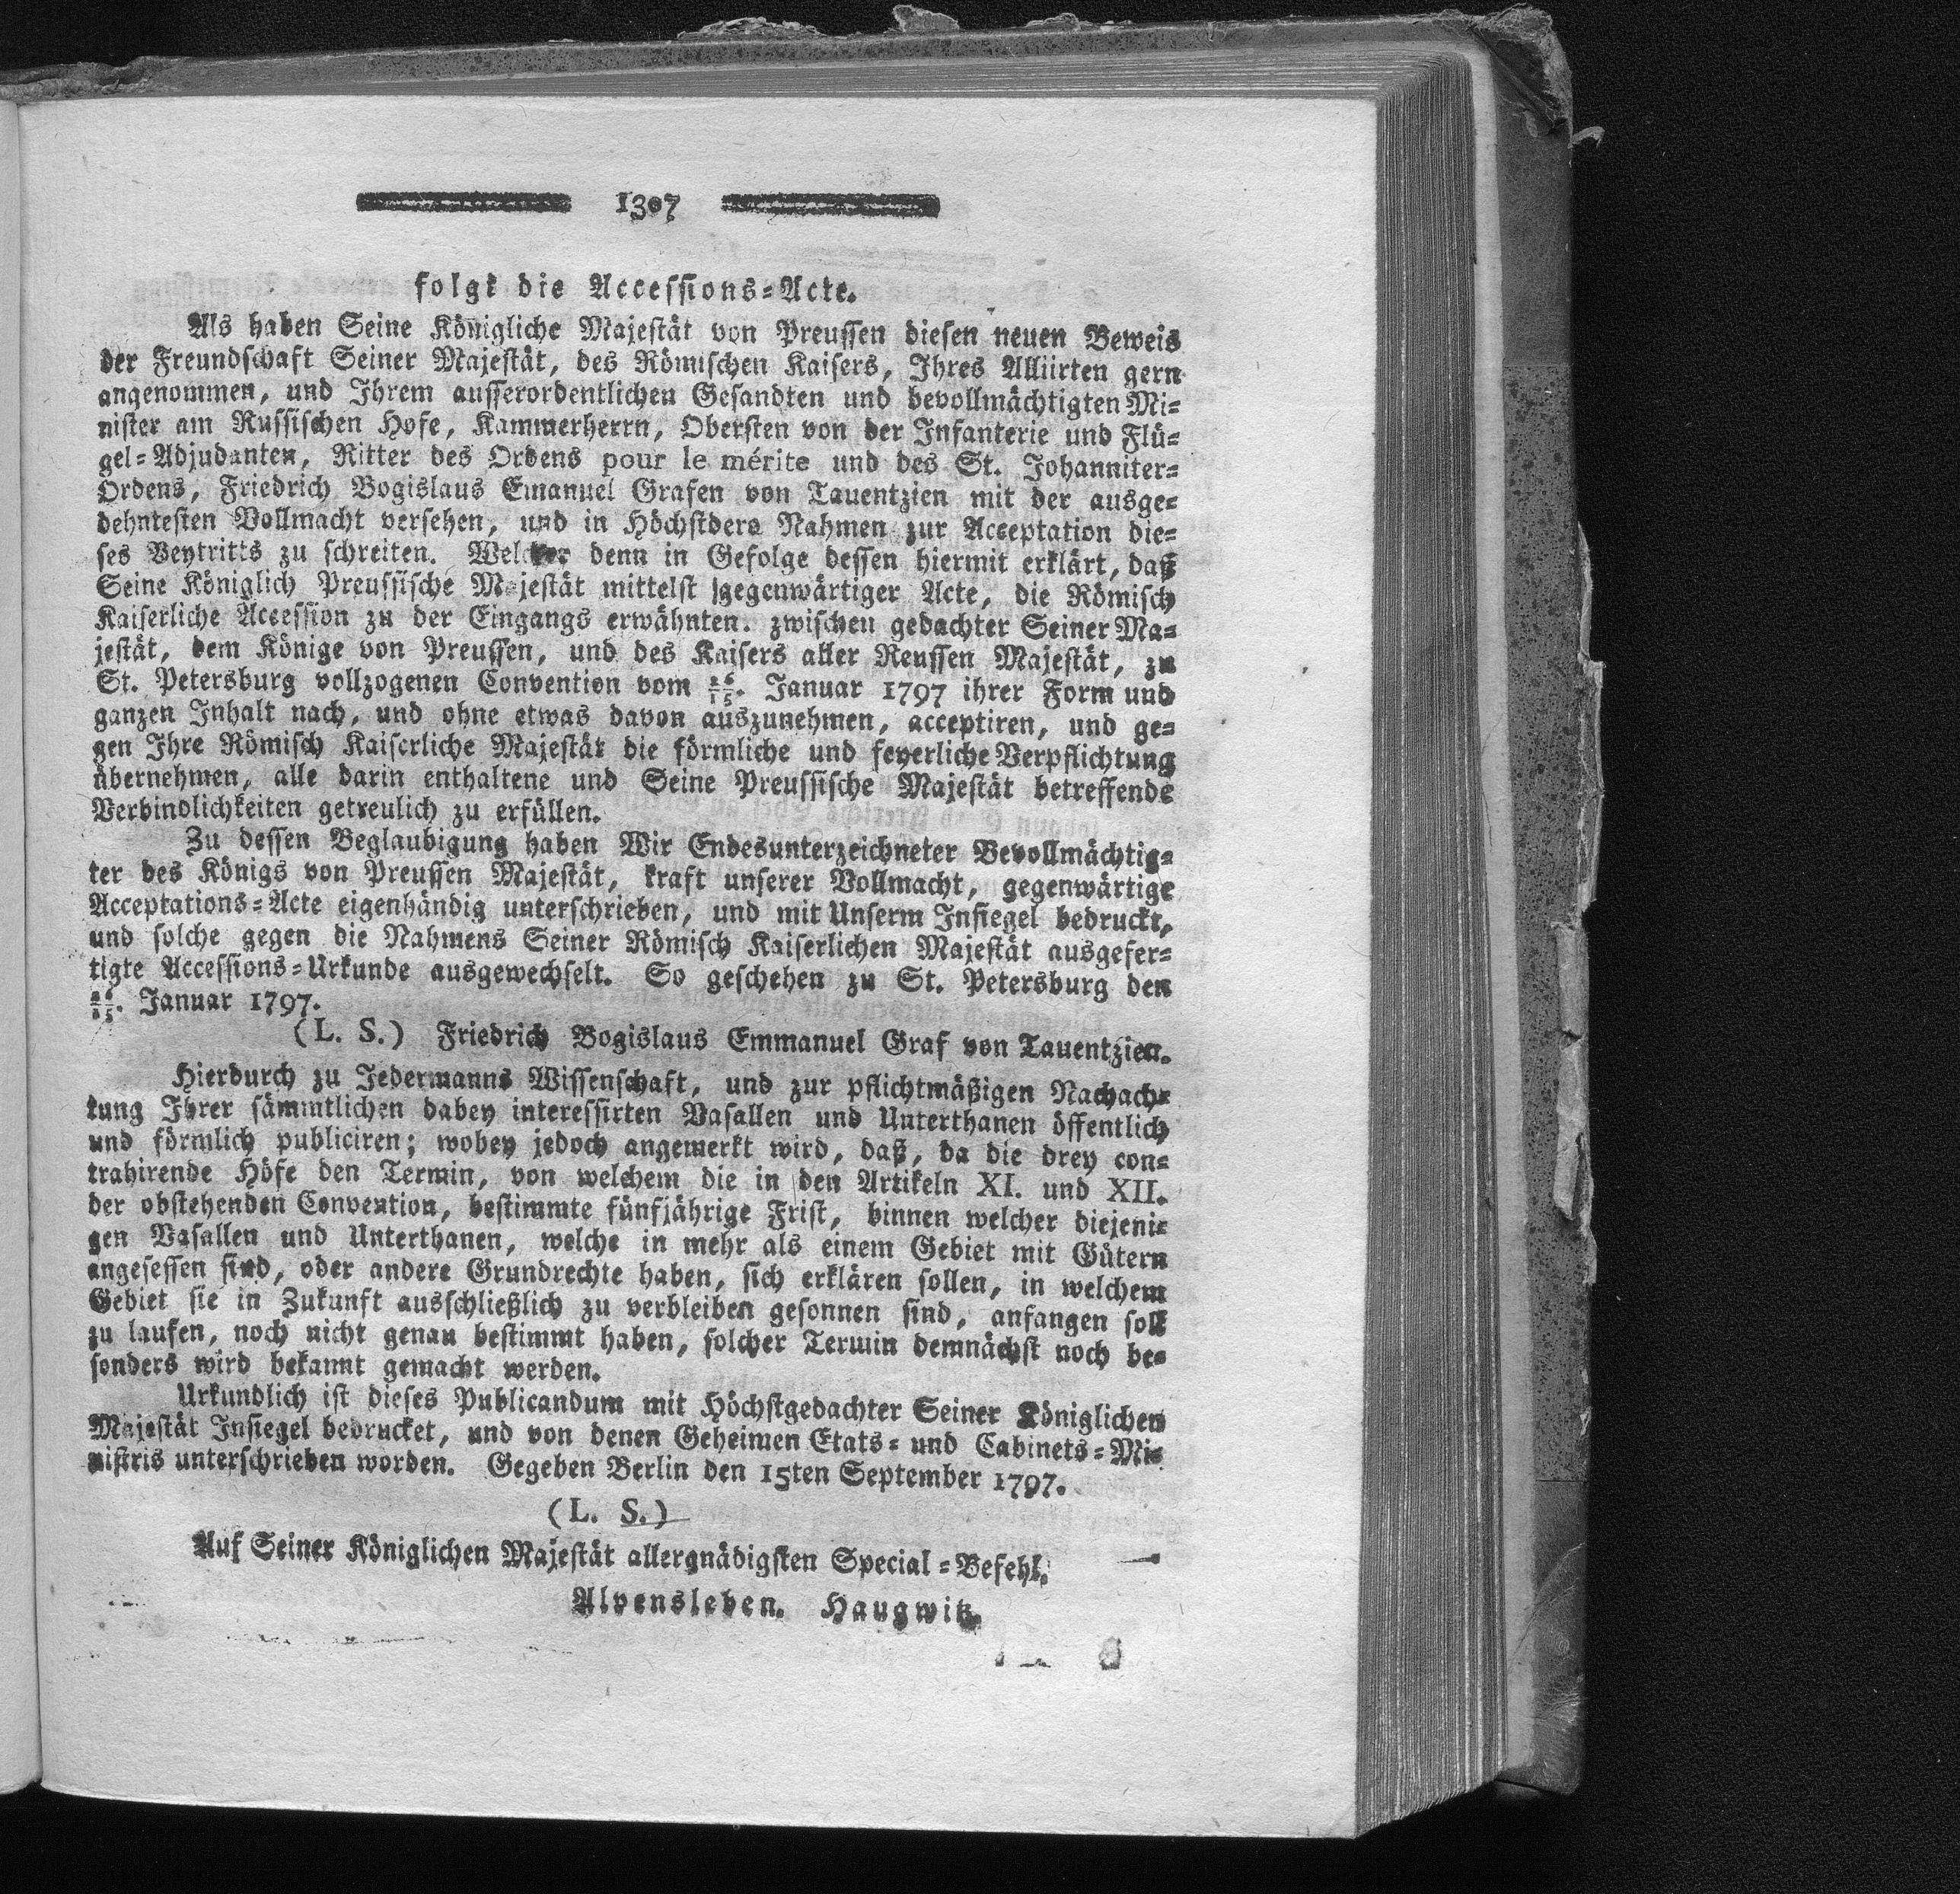 1307
folgt die Accessions-Acte.
Als haben Seine Königliche Majestät von Preussen diesen neuen Beweis
der Freundschaft Seiner Majestät, des Römischen Kaisers, Ihres Alliirten gern
angenommen, und Ihrem ausserordentlichen Gesandten und bevollmächtigten Mi-
nister am Russischen Hofe, Kammerherrn, Obersten von der Infanterie und Flü-
gel-Adjudanten, Ritter des Ordens pour le mérite und des St. Johanniter-
Ordens, Friedrich Bogislaus Emanuel Grafen von Tauentzien mit der ausge-
dehntesten Vollmacht versehen, und in Höchstdero Nahmen zur Acceptation die-
ses Beytritts zu schreiten. Welcher denn in Gefolge dessen hiermit erklärt, daß
Seine Königlich Preussische Majestät mittelst gegenwärtiger Acte, die Römisch
Kaiserliche Accession zu der Eingangs erwähnten. zwischen gedachter Seiner Ma-
jestät, dem Könige von Preussen, und des Kaisers aller Reussen Majestät, zu
St. Petersburg vollzogenen Convention vom 26/15. Januar 1797 ihrer Form und
ganzen Inhalt nach, und ohne etwas davon auszunehmen, acceptiren, und ge-
gen Ihre Römisch Kaiserliche Majestät die förmliche und feyerliche Verpflichtung
übernehmen, alle darin enthaltene und Seine Preussische Majestät betreffende
Verbindlichkeiten getreulich zu erfüllen.
Zu dessen Beglaubigung haben Wir Endesunterzeichneter Bevollmächtig-
ter des Königs von Preussen Majestät, kraft unserer Vollmacht, gegenwärtige
Acceptations-Acte eigenhändig unterschrieben, und mit Unserm Insiegel bedruckt,
und solche gegen die Nahmens Seiner Römisch Kaiserlichen Majestät ausgefer-
tigte Accessions-Urkunde ausgewechselt. So geschehen zu St. Petersburg den
26/15. Januar 1797.
(L. S.) Friedrich Bogislaus Emmanuel Graf von Tauentzien.
Hierdurch zu Jedermanns Wissenschaft, und zur pflichtmäßigen Nachach-
tung Ihrer sämmtlichen dabey interessirten Vasallen und Unterthanen öffentlich
und förmlich publiciren; wobey jedoch angemerkt wird, daß, da die drey con-
trahirende Höfe den Termin, von welchem die in den Artikeln XI. und XII.
der obstehenden Convention, bestimmte fünfjährige Frist, binnen welcher diejeni-
gen Vasallen und Unterthanen, welche in mehr als einem Gebiet mit Gütern
angesessen sind, oder andere Grundrechte haben, sich erklären sollen, in welchem
Gebiet sie in Zukunft ausschließlich zu verbleiben gesonnen sind, anfangen soll
zu laufen, noch nicht genau bestimmt haben, solcher Termin demnächst noch be-
sonders wird bekannt gemacht werden.
Urkundlich ist dieses Publicandum mit Höchstgedachter Seiner Königlichen
Majestät Insiegel bedrucket, und von denen Geheimen Etats- und Cabinets-Mi-
nistris unterschrieben worden. Gegeben Berlin den 15ten September 1797.
(L. S.)
Auf Seiner Königlichen Majestät allergnädigsten Special-Befehl.
Alvensleben. Haugwitz.